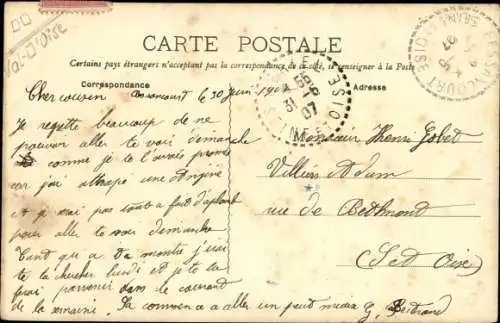 DD
Val-d'Oise
CARTE POSTALE
Certains pays étrangers n'acceptant pas la correspondance de ce côté, se renseigner à la Poste
Correspondance
Adresse
Cher cousin
le 30 Juin 190
Je regrette beaucoup de ne
pouvoir aller te voir dimanche
comme je te l'avais promis
car j'ai attrapé une Angine
et je serai pas tout a fait d'aplomb
pour aller te voir dimanche
Tant qu'a ta montre j'irai
te la chercher lundi et je te la
ferai parvenir dans le courant
de la semaine. Sa commence a aller un peut mieux G. Bertrand
Monsieur Henri Gobet
Villiers Adam
rue de Bethmont
(S et Oise)
31 -8
07
OISE
SEINE
07